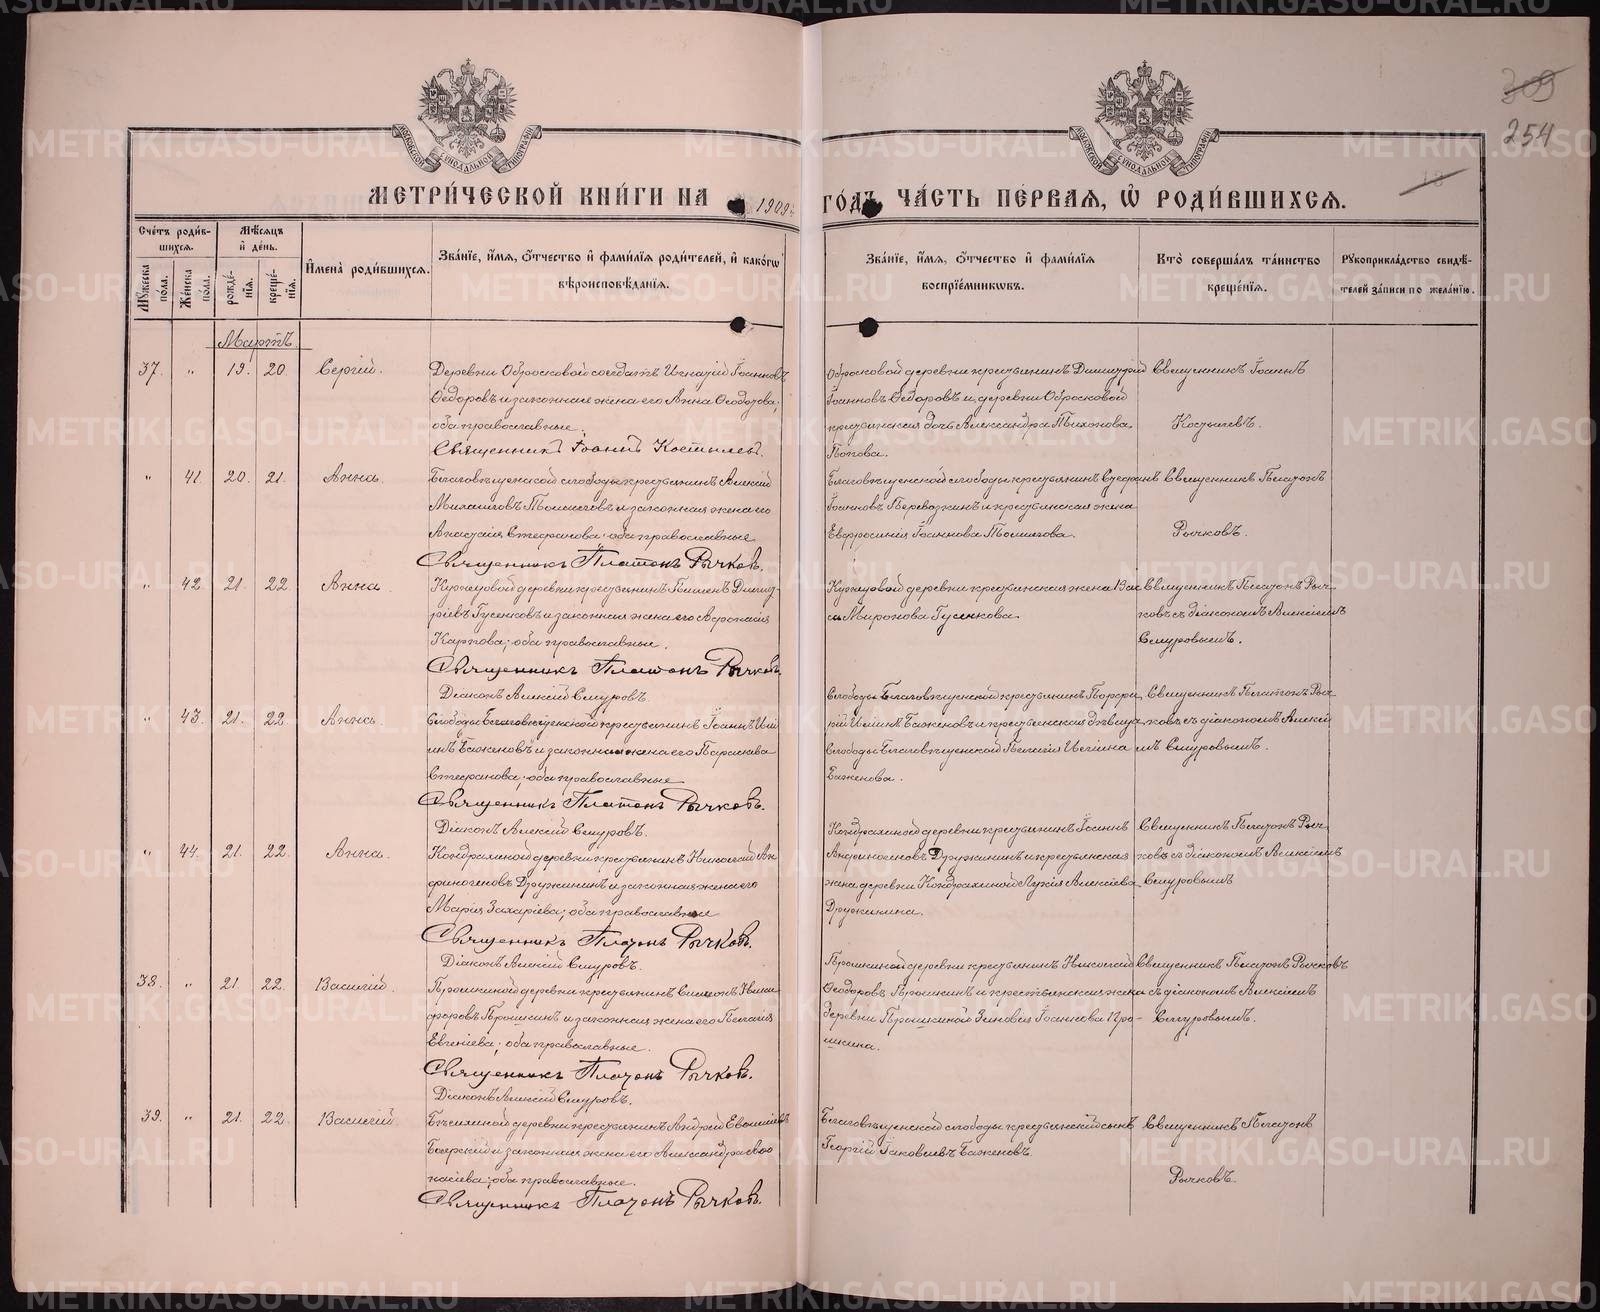 309
254
18
МОСКОВСКОЙ СѴНОДАЛЬНОЙ ТИПОГРАФІИ
МОСКОВСКОЙ СѴНОДАЛЬНОЙ ТИПОГРАФІИ
МЕТРИ́ЧЕСКОЙ КНИ́ГИ НА 1909 ГО́ДЪ ЧА́СТЬ ПЕ́РВАЯ, Ѡ РОДИ́ВШИХСЯ.
Сче́тъ роди́в-
шихся.
Мѣ́сяцъ
и́ де́нь.
Му́жеска
по́ла.
Же́нска
по́ла.
рожде́-
нія.
креще́-
нія.
И́мена̀ роди́вшихся.
Зва́ніе, и́мя, о́тчество и́ фами́лія роди́телей, и́ како́гѡ
вѣроисповѣ́данія.
Зва́ніе, и́мя, о́тчество и́ фами́лія
воспріе́мниковъ.
Кто̀ соверша́лъ та́инство
креще́нія.
Рукоприкла́дство свидѣ́-
телей за́писи по жела́нію.
Мартъ
37. " 19. 20 Сергій.
Деревни Обросковой солдатъ Игнатій Іоанновъ
Ѳедоровъ и законная жена его Анна Ѳеодотова;
оба православные.
Священникъ Іоаннъ Костылевъ.
Обросковой деревни крестьянинъ Димитрій
Іоанновъ Ѳедоровъ и деревни Обросковой
крестьянская дочь Александра Тихонова
Попова.
Священникъ Іоаннъ
Костылевъ.
" 41. 20. 21. Анна.
Благовѣщенской слободы крестьянинъ Алексій
Михаиловъ Томиловъ и законная жена его
Анастасія Стефанова; оба православные
Священникъ Платонъ Рычковъ.
Благовѣщенской слободы крестьянинъ Стефанъ
Іоанновъ Перевозкинъ и крестьянская жена
Евфросинія Іоаннова Томилова.
Священникъ Платонъ
Рычковъ.
" 42. 21. 22. Анна.
деревни крестьянинъ Димит-
ріевъ Гусенковъ и законная жена его
Карпова; оба православные.
Священникъ Платонъ Рычковъ.
Діаконъ Алексій Смуровъ
деревни крестьянская жена Вас
са Миронова Гусенкова.
Священникъ Платонъ Рыч-
ковъ съ діакономъ Алексіемъ
Смуровымъ.
" 43. 21. 22. Анна.
Слободы Благовѣщенской крестьянинъ Іоаннъ Или
инъ Баженовъ и законная жена его Параскева
Стефанова; оба православные
Священникъ Платонъ Рычковъ.
Діаконъ Алексій Смуровъ.
Слободы Благовѣщенской крестьянинъ Порфи
рій Илiинъ Баженовъ и крестьянская дѣвица
Слободы Благовѣщенской Пелагія Иліина
Баженова.
Священникъ Платонъ Рыч
ковъ съ діакономъ Алексіе
мъ Смуровымъ.
" 44. 21. 22. Анна.
Кондрахиной деревни крестьянинъ Николай Ан
финогеновъ Дружининъ и законная жена его
Марія Захаріева; оба православные
Священникъ Платонъ Рычковъ.
Діаконъ Алексій Смуровъ.
Кондрахиной деревни крестьянинъ Іоаннъ
Анфиногеновъ Дружининъ и крестьянская
жена деревни Кондрахиной Лукія Алексіева
Дружинина.
Священникъ Платонъ Рыч-
ковъ съ діакономъ Алексіемъ
Смуровымъ
38. " 21. 22. Василій.
Прошкиной деревни крестьянинъ Симеонъ Ники
форовъ Прошкинъ и законная жена его Пелагія
Евгеніева; оба православные.
Священникъ Платонъ Рычковъ.
Діаконъ Алексій Смуровъ.
Прошкиной деревни крестьянинъ Николай
Ѳеодоровъ Прошкинъ и крестьянская жена
деревни Прошкиной Зиновія Іоаннова Про-
шкина.
Священникъ Платонъ Рычковъ
съ діакономъ Алексіемъ
Смуровымъ.
39. " 21. 22. Василій.
деревни крестьянинъ Андрей
Боярскій и законная жена его Александра Аѳо
насіева; оба православные.
Священникъ Платонъ Рычковъ.
Благовѣщенской слободы крестьянскій сынъ
Георгій Іаковлевъ Баженовъ.
Священникъ Платонъ
Рычковъ.
METRIKI.GASO-URAL.RU